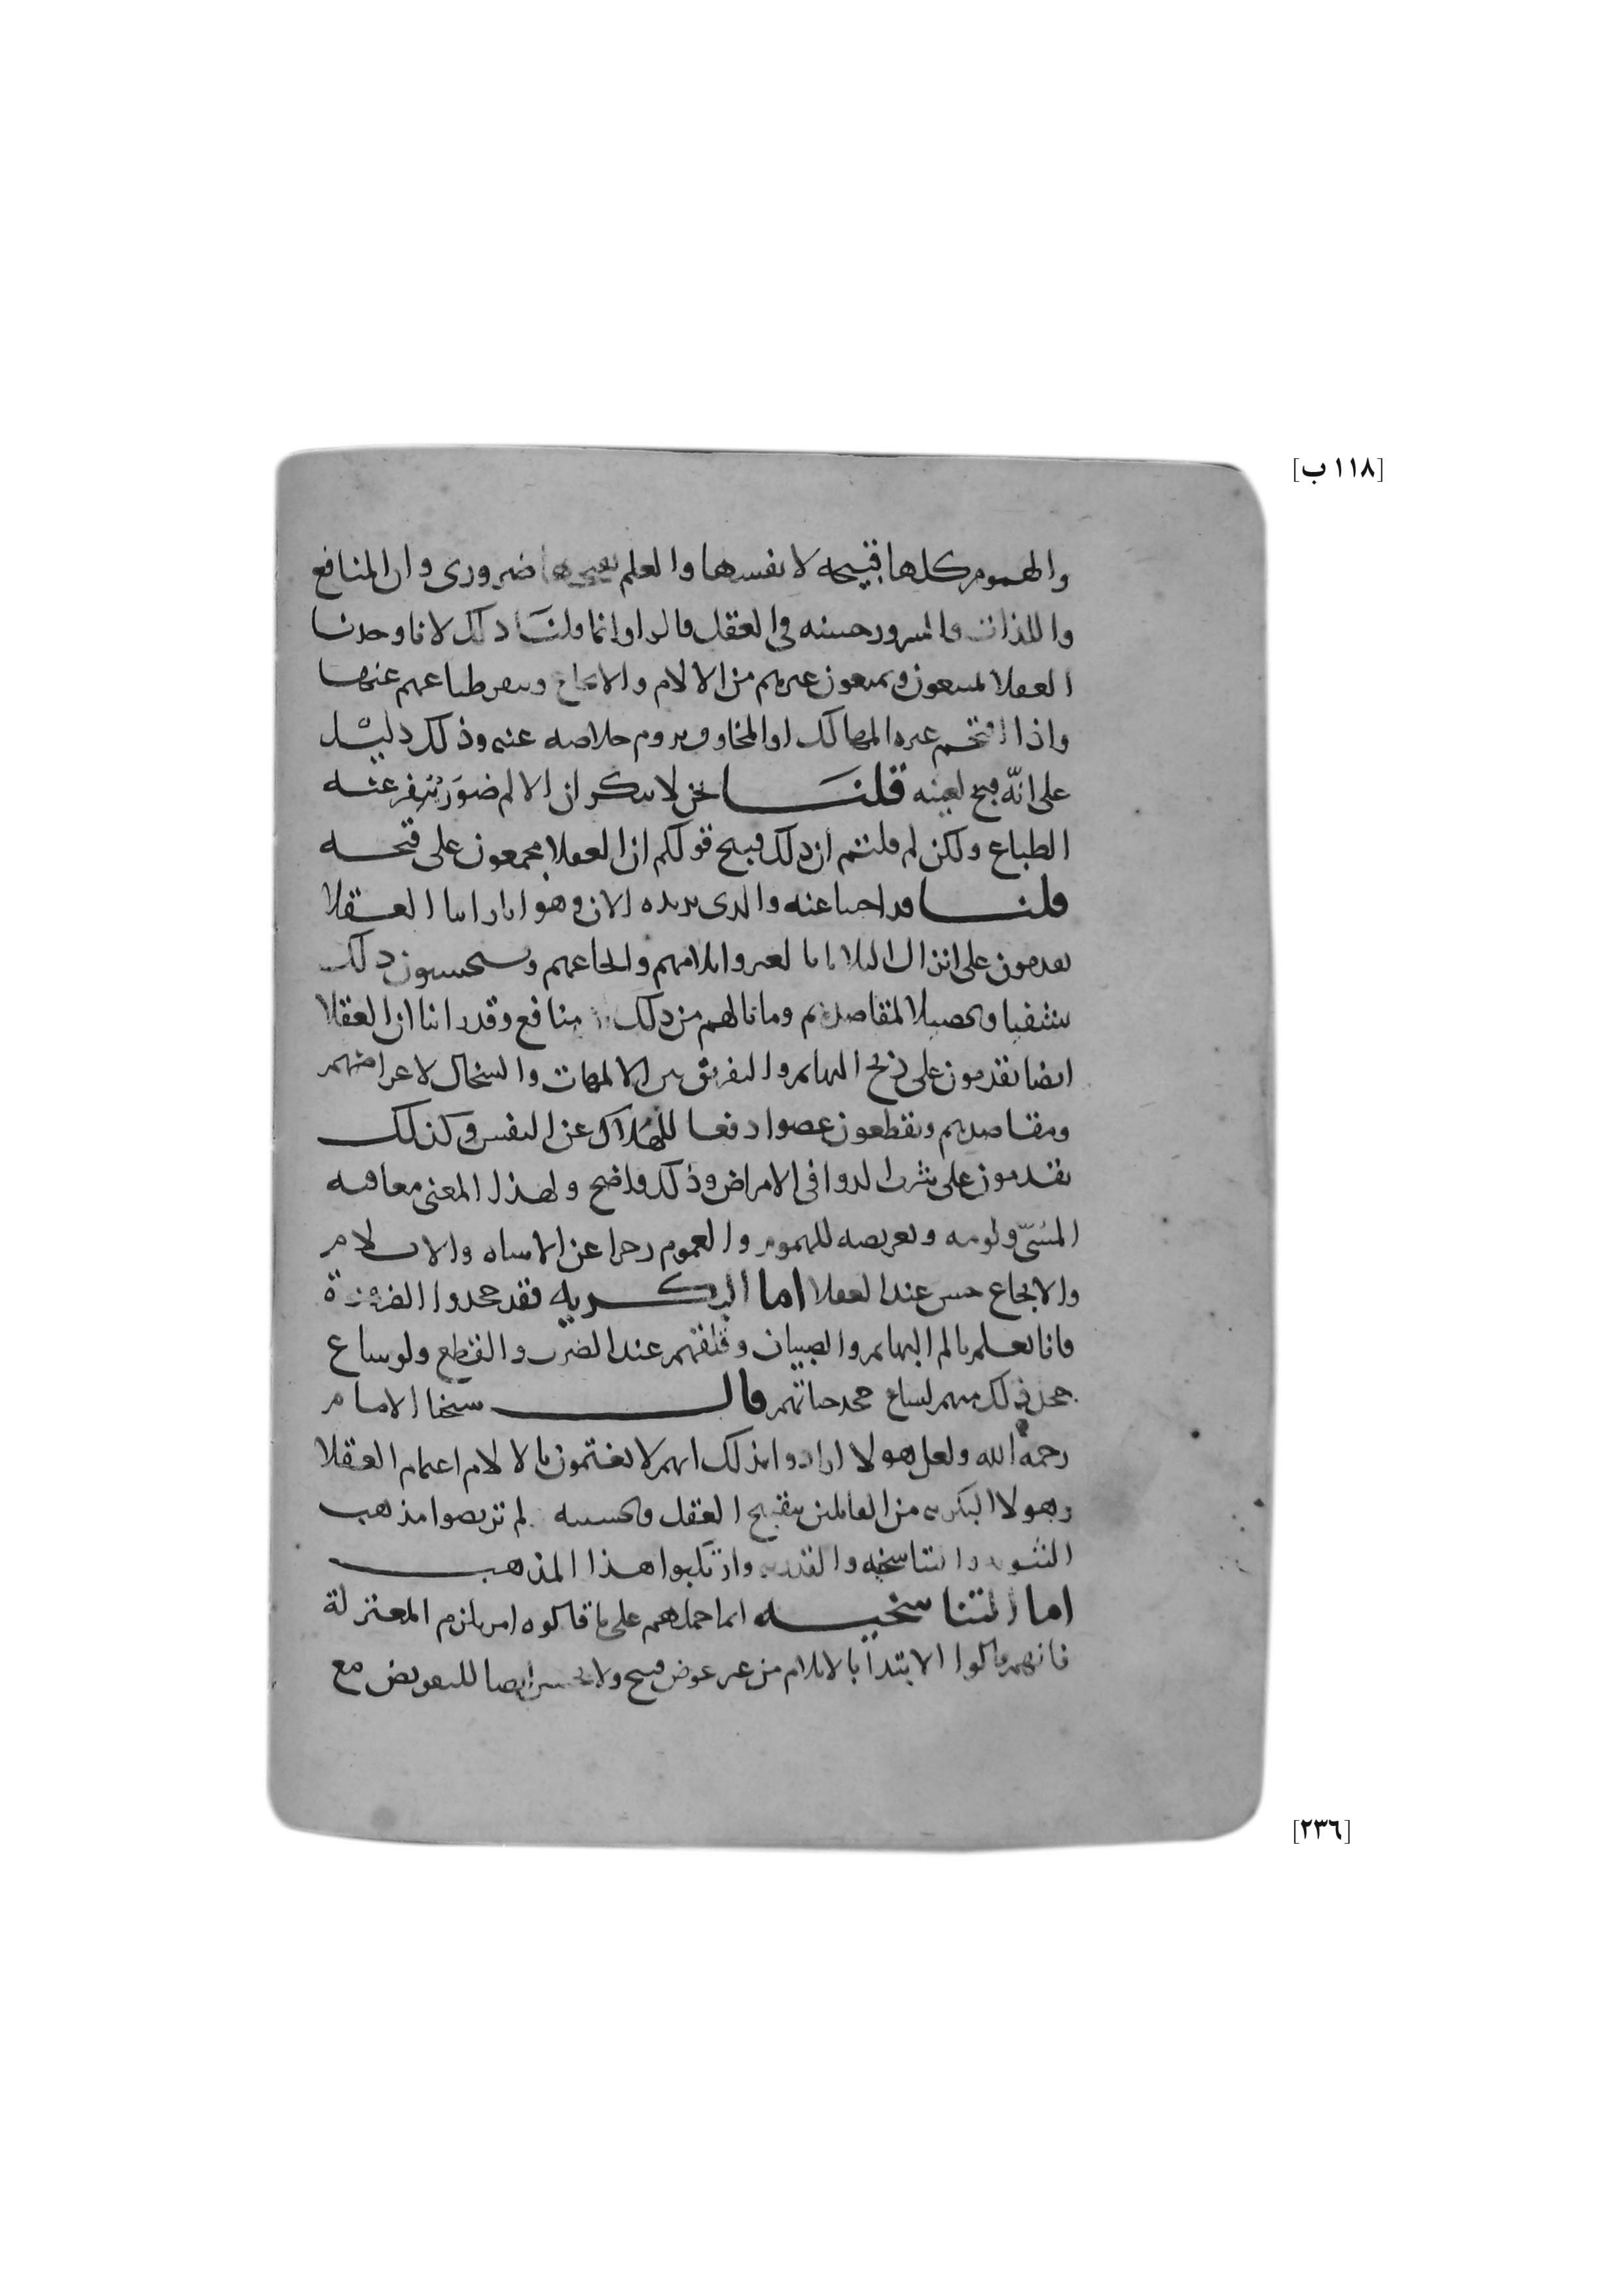 [١١٨ ب]
والهموم كلها قبيحه لانفسها والعلم بقبحها ضرورى وان المنافع
واللذات والسرور حسنه فى العقل قالوا وانما قلنا ذلك لانا وجدنا
العقلا يمتنعون ويمنعون غيرهم من الالام والاوجاع وينفر طباعهم عنها
واذا اقتحم غيره المهالك او المخاوف يروم خلاصه عنه وذلك دليل
على انّه قبح لعينه قلنا نحن لا ننكر ان الالم ضرر تنفر عنه
الطباع ولكن لم قلتم ان ذلك قبيح قولكم ان العقلا مجمعون على قبحه
قلنا قد اجبنا عنه والذى نريده الان وهو انا راينا العقلا
يقدمون على انزال البلايا بالغير وايلامهم وايجاعهم ويستحسنون ذلك
تشفيا وتحصيلا لمقاصدهم وما نالهم من ذلك منافع وقد راينا ان العقلا
ايضا يقدمون على ذبح البهائم والتفريق بين الامهات والسخال لاغراضهم
ومقاصدهم ويقطعون عضوا دفعا للهلاك عن النفس وكذلك
يقدمون على شرب الدوا فى الامراض وذلك واضح ولهذا المعنى معاقبه
المسىّ ولومه وتعريضه للهموم والغموم زجرا عن الاساه والايلام
والايجاع حسن عند العقلا اما البكريه فقد جحدوا الضرورة
فانا نعلم تالم البهائم والصبيان وقلقهم عند الضرب والقطع ولو ساغ
جحد ذلك منهم لساغ جحد حياتهم قال شيخنا الامام
رحمه الله ولعل هولا ارادوا بذلك انهم لا يغتمون بالالام اغتمام العقلا
وهولا البكريه من القائلين بتقبيح العقل وتحسينه لم ترتضوا مذهب
الثنويه والتناسخيه وارتكبوا هذا المذهب
اما التناسخيه انما حملهم على ما قالوه امر يلزم المعتزلة
فانهم قالوا الابتدا بالايلام من غير عوض قبيح ولا يحسن ايضا للتعويض مع
[٢٣٦]